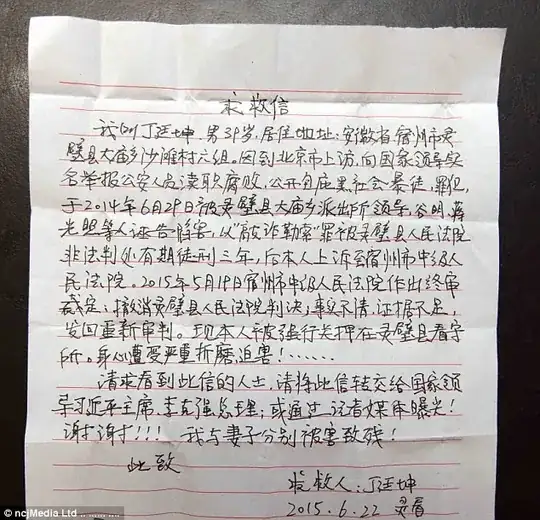 求救信
我叫丁廷坤,男39岁,居住地址:安徽省宿州市灵
璧县大庙乡沙滩村六组。因到北京市上访,向国家领导实
名举报公安人员渎职腐败,公开包庇黑社会暴徒,罪犯,
于2014年6月29日被灵璧县大庙乡派出所领导,谷明,蒋
光照等人诬告陷害,以“敲诈勒索”罪被灵璧县人民法院
非法判处有期徒刑三年,后本人上诉至宿州市中级人
民法院。2015年5月19日宿州市中级人民法院作出终审
裁定,撤消灵璧县人民法院判决,事实不清,证据不足,
发回重新审判。现本人被强行关押在灵璧县看守
所。身心遭受严重折磨,迫害!……
请求看到此信的人士,请将此信转交给国家领
导习近平主席,李克强总理;或通过记者媒体曝光!
谢谢!!! 我与妻子分别被害致残!
此致
求救人:丁廷坤
2015.6.22 灵看
© ncjMedia Ltd